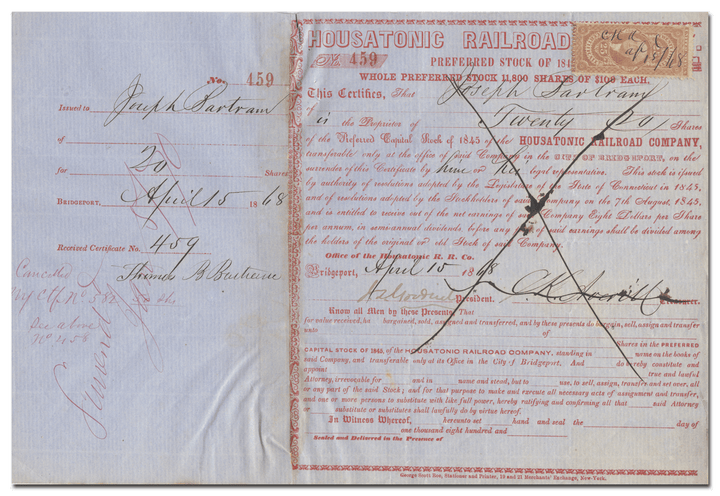 No. 459
Issued to Joseph Bartram
of
for 20 Shares
BRIDGEPORT, April 15 1868
Received Certificate No. 459
Thomas B Bartram
Cancelled
See above
No 458
HOUSATONIC RAILROAD
No. 459
PREFERRED STOCK OF 184
WHOLE PREFERRED STOCK 11,800 SHARES OF $100 EACH,
This Certifies, That Joseph Bartram
of
is the Proprietor of Twenty (20) Shares
of the Preferred Capital Stock of 1845 of the HOUSATONIC RAILROAD COMPANY,
transferable only at the office of said Company in the CITY OF BRIDGEPORT, on the
surrender of this Certificate by him or his legal representative. This stock is issued
by authority of resolutions adopted by the Legislature of the State of Connecticut in 1845,
and of resolutions adopted by the Stockholders of said Company on the 7th August, 1845,
and is entitled to receive out of the net earnings of said Company Eight Dollars per Share
per annum, in semi-annual dividends, before any part of said earnings shall be divided among
the holders of the original or old Stock of said Company.
Office of the Housatonic R. R. Co.
Bridgeport, April 15 1868
President. Treasurer.
Know all Men by these Presents, That
for value received, ha bargained, sold, assigned and transferred, and by these presents do bargain, sell, assign and transfer
unto
Shares in the PREFERRED
CAPITAL STOCK OF 1845, of the HOUSATONIC RAILROAD COMPANY, standing in name on the books of
said Company, and transferable only at its Office in the City of Bridgeport. And do hereby constitute and
appoint true and lawful
Attorney, irrevocable for and in name and stead, but to use, to sell, assign, transfer and set over, all
or any part of the said Stock; and for that purpose to make and execute all necessary acts of assignment and transfer,
and one or more persons to substitute with like full power, hereby ratifying and confirming all that said Attorney
or substitute or substitutes shall lawfully do by virtue hereof.
In Witness Whereof, hereunto set hand and seal the day of
one thousand eight hundred and
Sealed and Delivered in the Presence of
George Scott Roe, Stationer and Printer, 19 and 21 Merchants' Exchange, New-York.